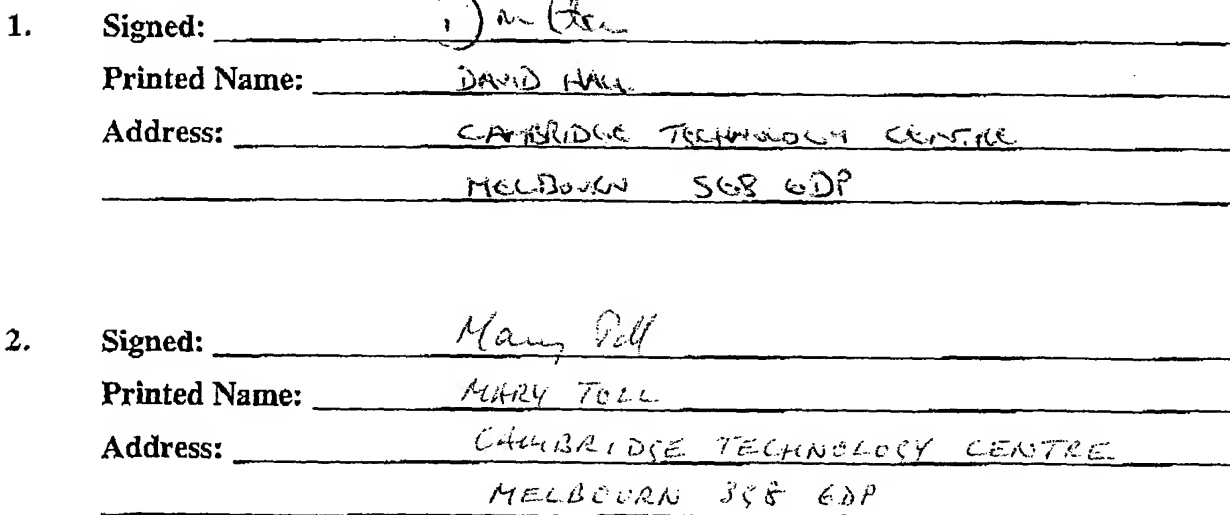 1. Signed:
Printed Name: DAVID HALL
Address: CAMBRIDGE TECHNOLOGY CENTRE
MELBOURN SG8 6DP
2. Signed: Mary Toll
Printed Name: MARY TOLL
Address: CAMBRIDGE TECHNOLOGY CENTRE
MELBOURN SG8 6DP